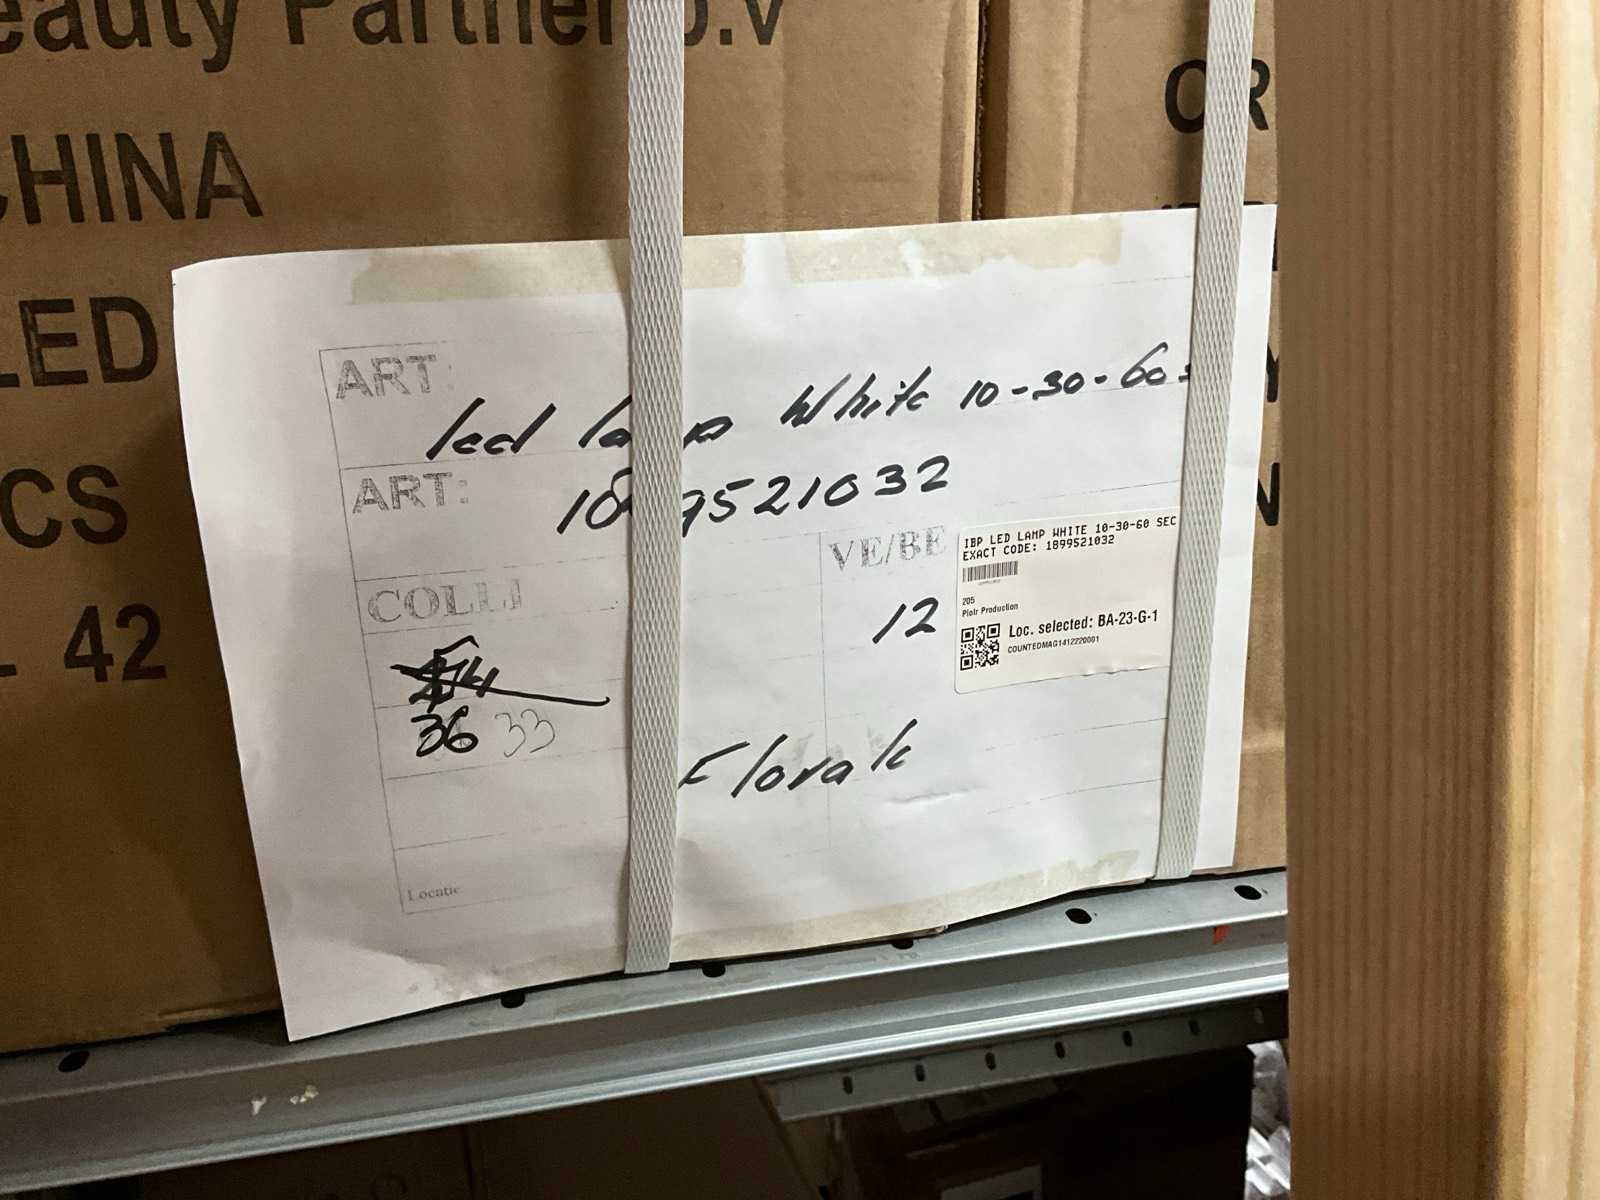 eauty Partner b.v
CHINA
LED
CS
42
OR
ART:
led lamp White 10-30-60s
ART:
1899521032
COLLI
VE/BE
12
36 33
Florak
Locatie
IBP LED LAMP WHITE 10-30-60 SEC
EXACT CODE: 1899521032
205
Piotr Production
Loc. selected: BA-23-G-1
COUNTEDMAG1412220001